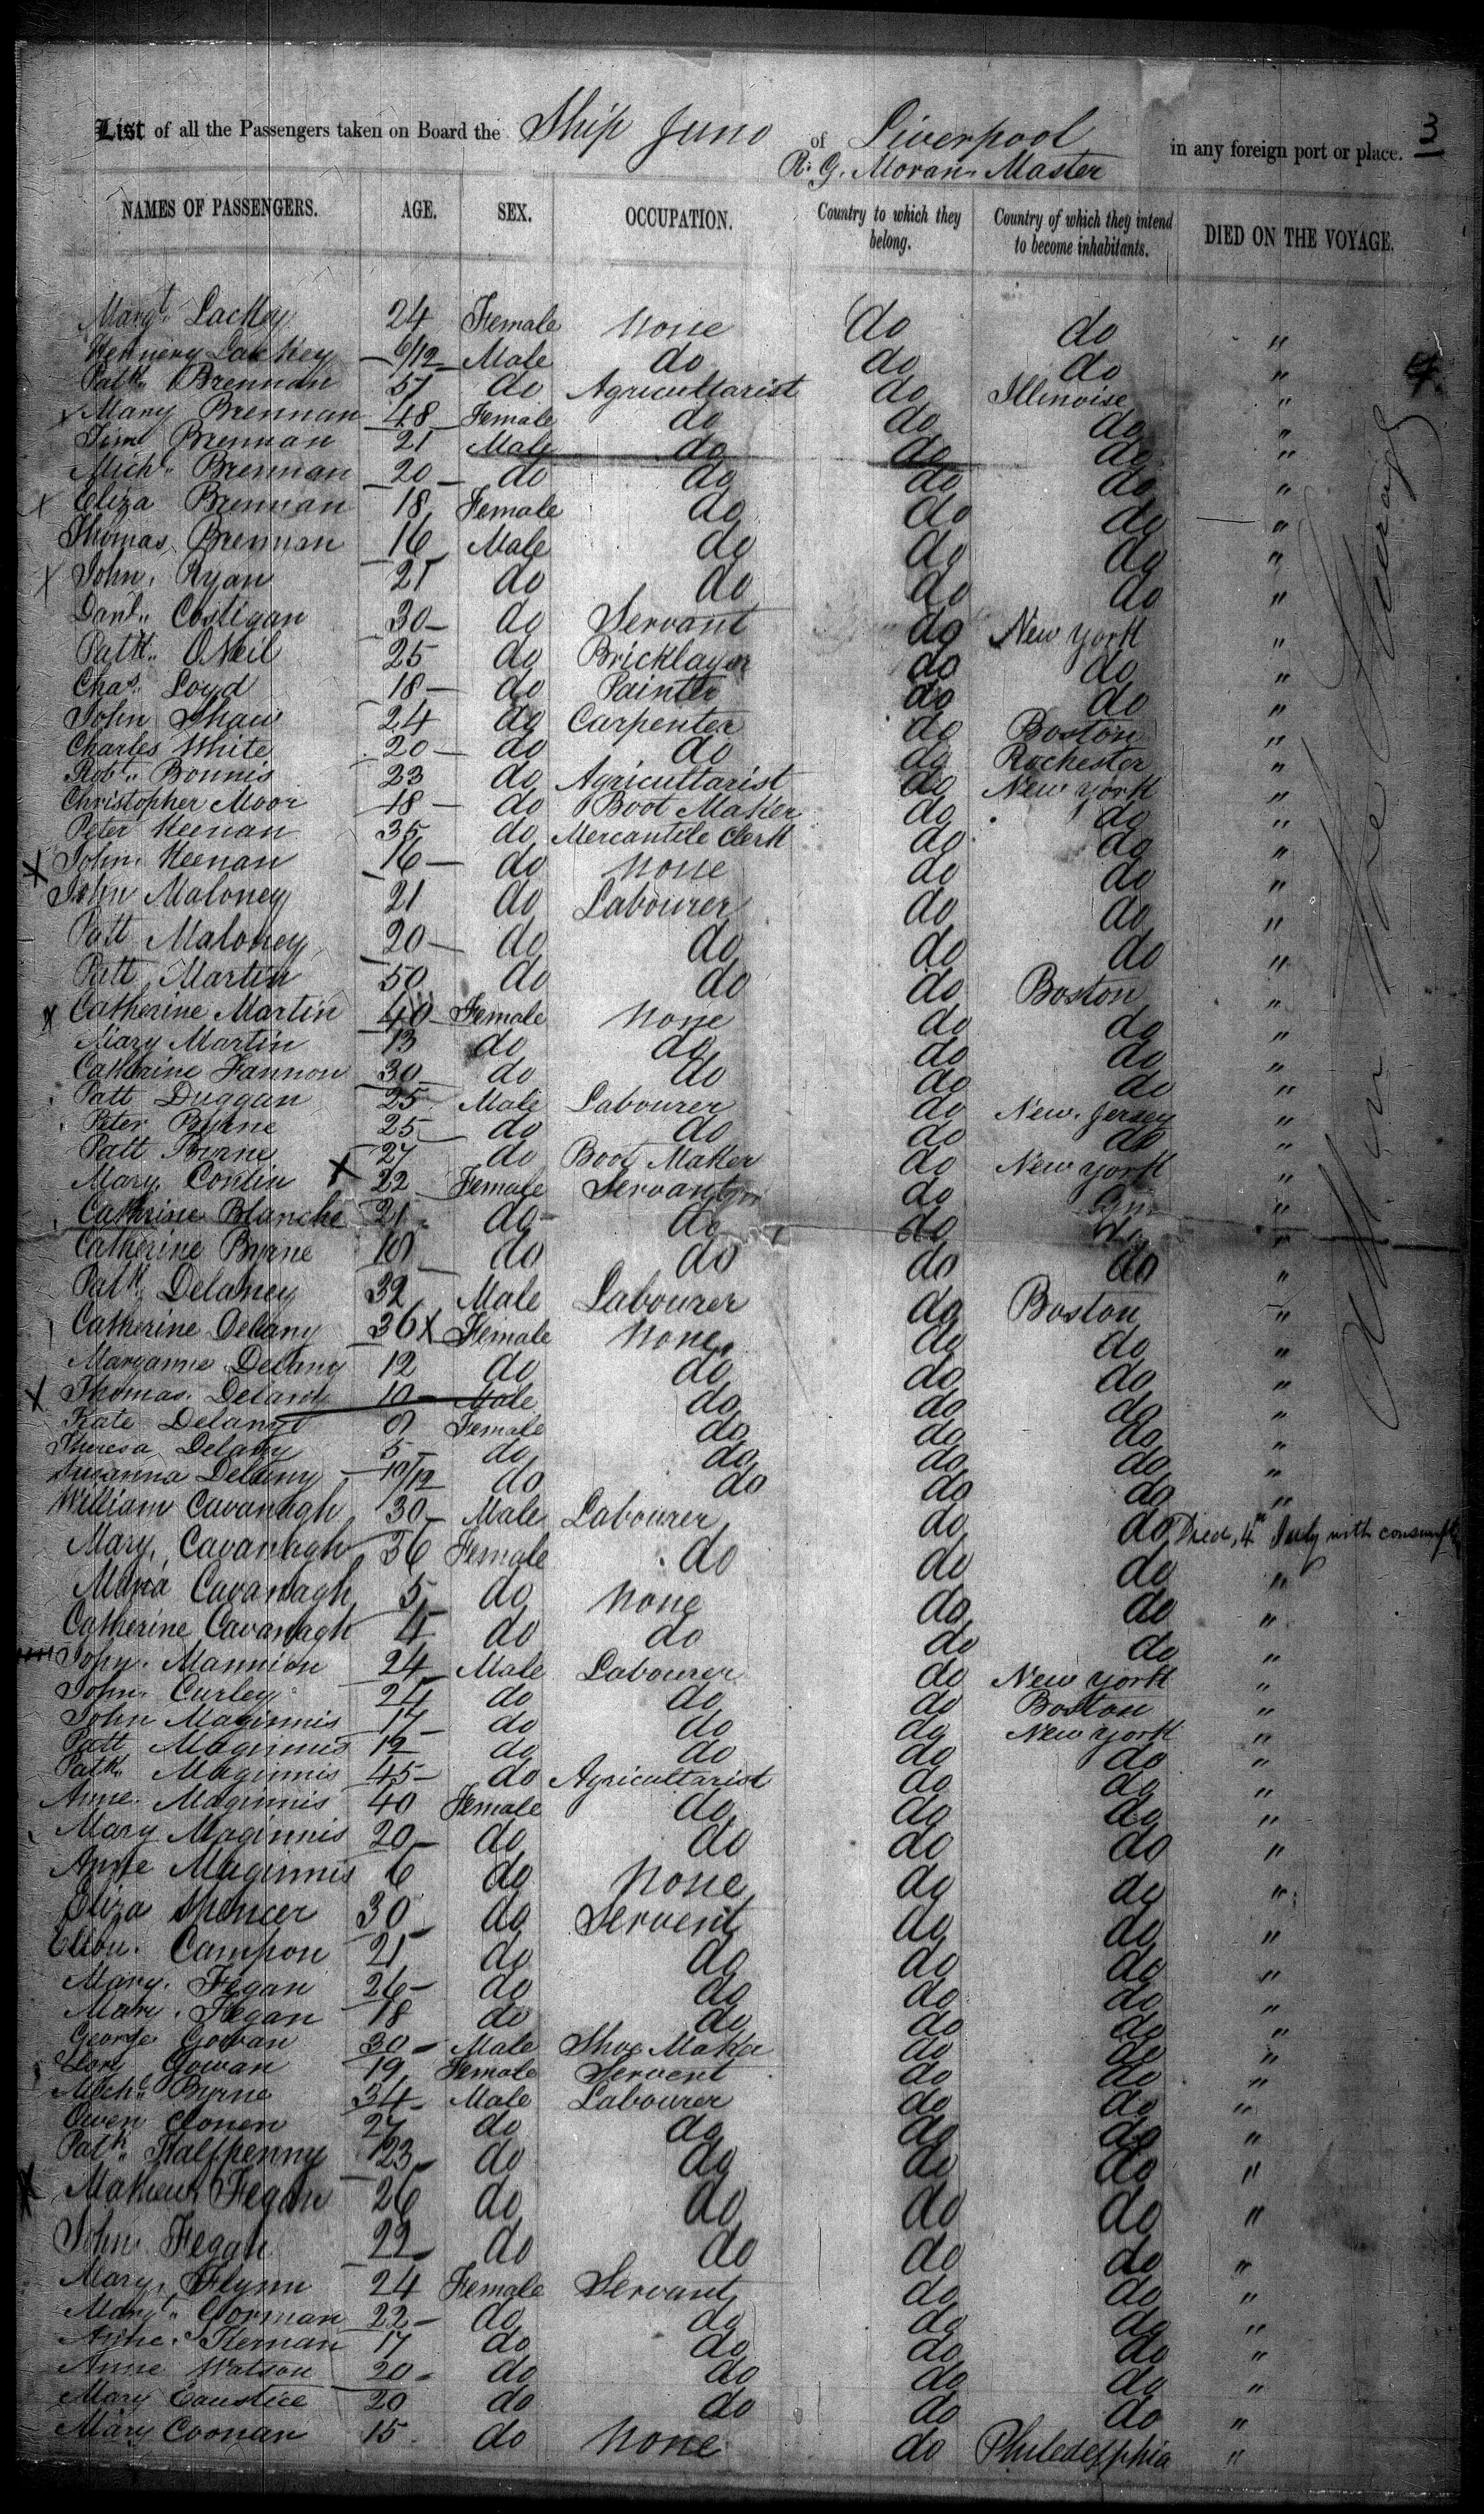 List of all the Passengers taken on Board the Ship Juno of Liverpool in any foreign port or place. 3
R. G. Moran Master
NAMES OF PASSENGERS. AGE. SEX. OCCUPATION. Country to which they belong. Country of which they intend to become inhabitants. DIED ON THE VOYAGE.
Margt. Lackey 24 Female None do do "
Hennery Lackey 6/12 Male do do do " 4
Patk. Brennan 57 do Agricultarist do Illinoise "
Mary Brennan 48 Female do do do "
Jim Brennan 21 Male do do do "
Michl. Brennan 20 do do do do "
Eliza Brennan 18 Female do do do "
Thomas Brennan 16 Male do do do "
John Ryan 21 do do do do "
Danl. Costigan 30 do Servant do New York "
Patk. ONeil 25 do Bricklayer do do "
Chas. Loyd 18 do Painter do do "
John Shaw 24 do Carpenter do Boston "
Charles White 20 do do do Rochester "
Robt. Bonnis 23 do Agricultarist do New York "
Christopher Moor 18 do Boot Maker do do "
Peter Keenan 35 do Mercantile Clerk do do "
John Keenan 16 do None do do "
John Maloney 21 do Labourer do do "
Patt Maloney 20 do do do do "
Patt Martin 50 do do do Boston "
Catherine Martin 40 Female None do do "
Mary Martin 13 do do do do "
Catherine Fannon 30 do do do do "
Patt Duggan 25 Male Labourer do New Jersey "
Peter Byrne 25 do do do do "
Patt Byrne 27 do Boot Maker do New York "
Mary Conlin 22 Female Servant do "
Cathrine Blanche 21 do do do do "
Catherine Byrne 19 do do do do "
Patk. Delaney 32 Male Labourer do Boston "
Catherine Delany 36 Female None do do "
Maryanne Delany 12 do do do do "
Thomas Delany 10 Male do do do "
Kate Delany 9 Female do do do "
Theresa Delany 5 do do do do "
Susanna Delany 10/12 do do do do "
William Cavanagh 30 Male Labourer do do Died 4th July with consumption
Mary Cavanagh 36 Female do do do "
Maria Cavanagh 5 do None do do "
Catherine Cavanagh 4 do do do do "
John Mannion 24 Male Labourer do New York "
John Curley 24 do do do Boston "
John Maginnis 14 do do do New York "
Patt Maginnis 12 do do do do "
Patk. Maginnis 45 do Agricultarist do do "
Anne Maginnis 40 Female do do do "
Mary Maginnis 20 do do do do "
Anne Maginnis 6 do None do do "
Eliza Spencer 30 do Servent do do "
Ellen Campon 21 do do do do "
Mary Fegan 26 do do do do "
Mary Fegan 18 do do do do "
George Gowan 30 Male Shoe Maker do do "
Gowan 19 Female Servent do do "
Michl. Byrne 34 Male Labourer do do "
Owen Conen 27 do do do do "
Patk. Halfpenny 23 do do do do "
Mathew Fegan 26 do do do do "
John Fegan 22 do do do do "
Mary Flynn 24 Female Servant do do "
Margt. Gorman 22 do do do do "
Anne Kernan 17 do do do do "
Anne Watson 20 do do do do "
Mary Eaustice 20 do do do do "
Mary Coonan 15 do None do Philedelphia "